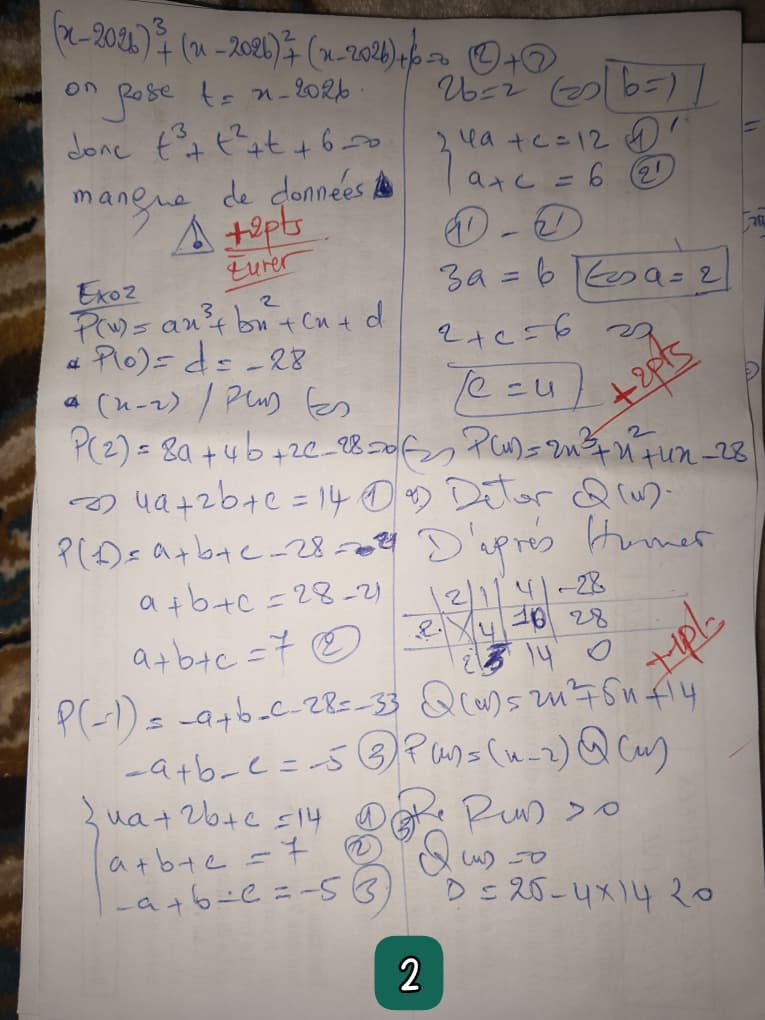 (x-2026)³ + (x-2026)² + (x-2026) + 6 = 0
on pose t = x-2026
donc t³ + t² + t + 6 = 0
manque de données
+2pts
Exo2
P(x) = ax³ + bx² + cx + d
P(0) = d = -28
(x-2) / P(x) ⇔
P(2) = 8a + 4b + 2c - 28 = 0
⇔ 4a + 2b + c = 14 ①
P(1) = a + b + c - 28 = -21
a + b + c = 28 - 21
a + b + c = 7 ②
P(-1) = -a + b - c - 28 = -33
-a + b - c = -5 ③
{ 4a + 2b + c = 14 ①
a + b + c = 7 ②
-a + b - c = -5 ③
② + ③
2b = 2 ⇔ b = 1
{ 4a + c = 12 ①'
a + c = 6 ②'
①' - ②'
3a = 6 ⇔ a = 2
2 + c = 6 ⇔
c = 4
+2pts
⇔ P(x) = 2x³ + x² + 4x - 28
2) Deter Q(x).
D'après Hurner
| 2 | 1 | 4 | -28
2 | X | 4 | 10 | 28
2 5 14 0
+1pt
Q(x) = 2x² + 5x + 14
P(x) = (x-2) Q(x)
3) Re P(x) > 0
Q(x) = 0
D = 25 - 4 × 14 < 0
2